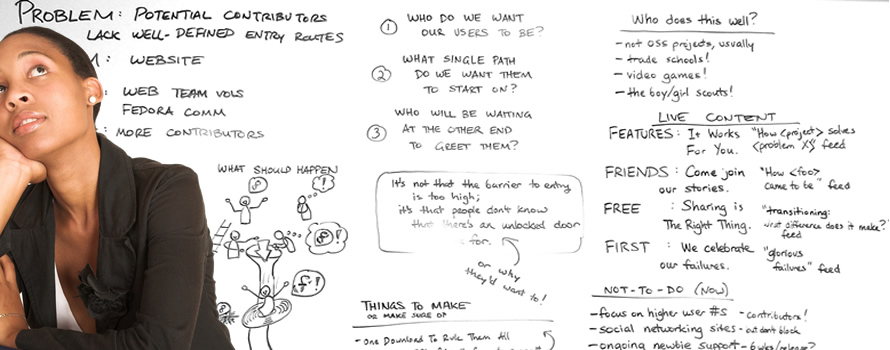 PROBLEM: POTENTIAL CONTRIBUTORS
LACK WELL-DEFINED ENTRY ROUTES
: WEBSITE
: WEB TEAM VOLS
FEDORA COMM
: MORE CONTRIBUTORS
WHAT SHOULD HAPPEN
1 WHO DO WE WANT
OUR USERS TO BE?
2 WHAT SINGLE PATH
DO WE WANT THEM
TO START ON?
3 WHO WILL BE WAITING
AT THE OTHER END
TO GREET THEM?
It's not that the barrier to entry
is too high;
it's that people don't know
that there's an unlocked door
for.
or why
they'd want to!
THINGS TO MAKE
OR MAKE SURE OF
- One Download To Rule Them All
Who does this well?
- not OSS projects, usually
- trade schools!
- video games!
- the boy/girl scouts!
LIVE CONTENT
FEATURES: It Works "How <project> solves
For You. <problem XY> feed
FRIENDS: Come join "How <foo>
our stories. came to be" feed
FREE: Sharing is "transitioning:
The Right Thing. what difference does it make?"
feed
FIRST: We celebrate "glorious
our failures. failures" feed
NOT-TO-DO (NOW)
- focus on higher user #s - contributors!
- social networking sites - but don't block
- ongoing newbie support - 6 wks/release?